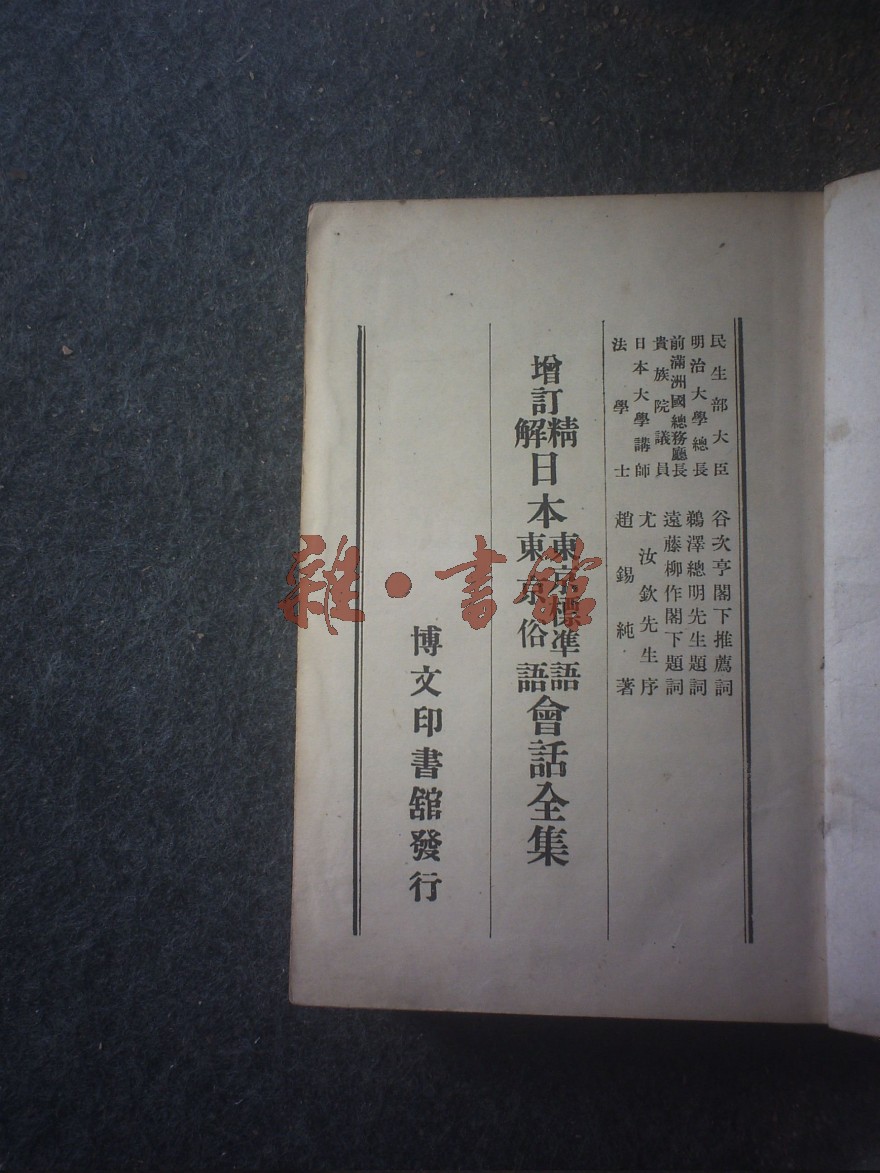 民生部大臣 谷次亨閣下推薦詞
明治大學總長 鵜澤總明先生題詞
前滿洲國總務廳長 遠藤柳作閣下題詞
貴族院議員
日本大學講師 尤汝欽先生序
法學士 趙錫純著
增訂
精解
日本
東京標準語
東京俗語
會話全集
博文印書館發行
雜·書館